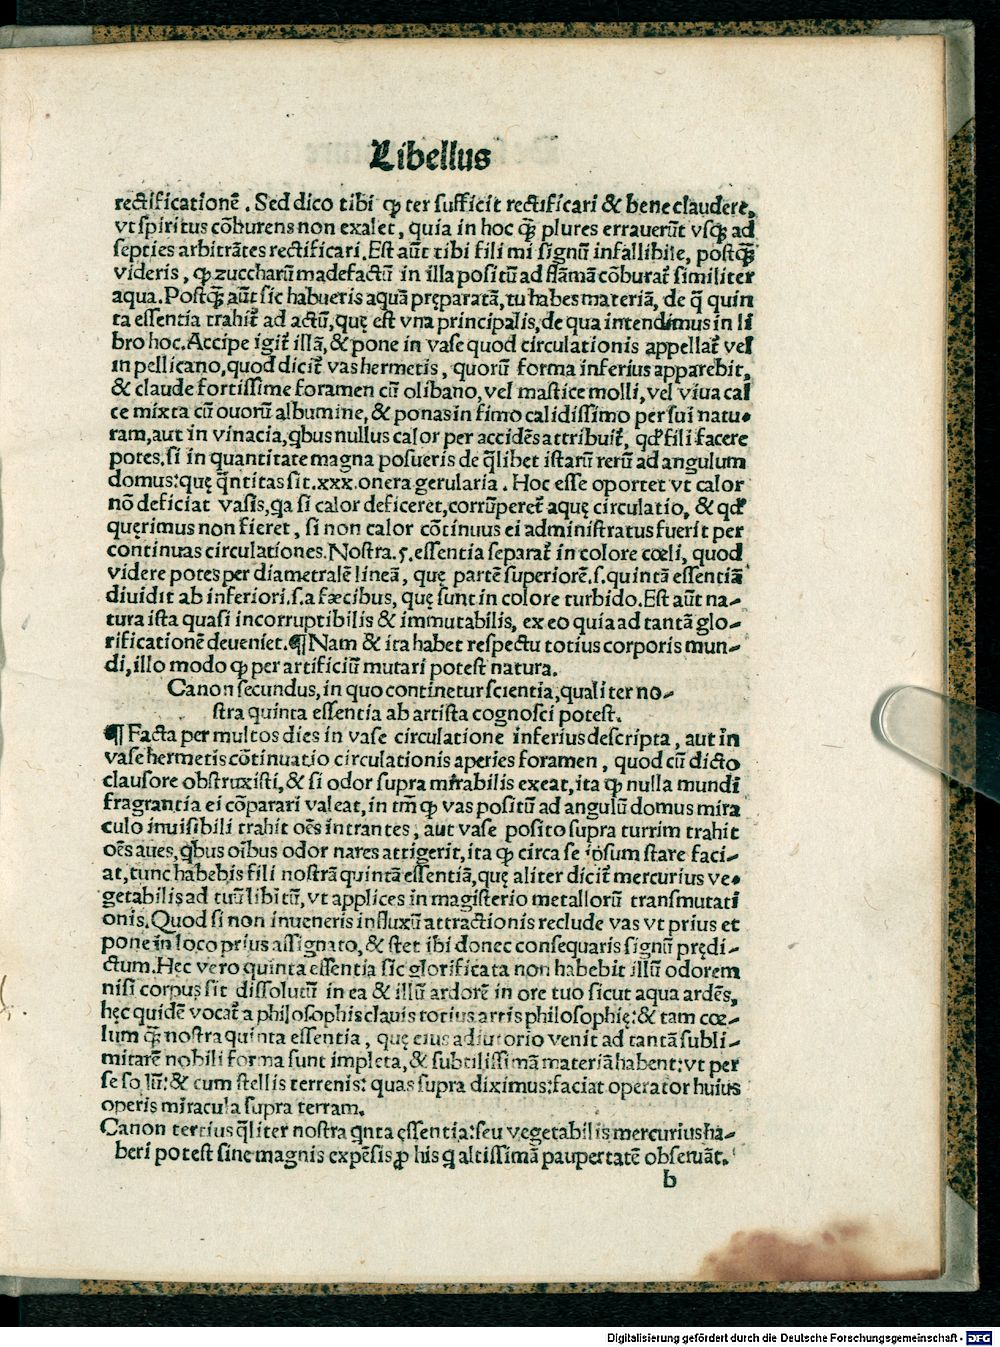 Libellus
rectificationē. Sed dico tibi ꝙ ter sufficit rectificari & bene claudere,
vt spiritus cōburens non exalet, quia in hoc qꝫ̄ plures errauerūt vsqꝫ ad
septies arbitrātes rectificari. Est aūt tibi fili mi signū infallibile, postqꝫ̄
videris, ꝙ zuccharū madefactū in illa positū ad flāmā cōburat᷑ similiter
aqua. Postqꝫ̄ aūt sic habueris aquā pręparatā, tu habes materiā, de q̄ quin
ta essentia trahit᷑ ad actū, quę est vna principalis, de qua intendimus in li
bro hoc. Accipe igit᷑ illā, & pone in vase quod circulationis appellat᷑ vel
in pellicano, quod dicit᷑ vas hermetis, quorū forma inferius apparebit,
& claude fortissime foramen cū olibano, vel mastice molli, vel viua cal
ce mixta cū ouorū albumine, & ponas in fimo calidissimo per sui natu-
ram, aut in vinacia, qbus nullus calor per accidēs attribuit᷑, qď fili facere
potes. si in quantitate magna posueris de q̄libet istarū rerū ad angulum
domus: quę q̄ntitas sit .xxx. onera gerularia. Hoc esse oportet vt calor
nō deficiat vasis, qa si calor deficeret, corrūperet᷑ aquę circulatio, & qď
quęrimus non fieret, si non calor cōtinuus ei administratus fuerit per
continuas circulationes. Nostra .5. essentia separat᷑ in colore cœli, quod
videre potes per diametralē lineā, quę partē superiorē .s. quintā essentiā
diuidit ab inferiori .s. a fæcibus, quę sunt in colore turbido. Est aūt na-
tura ista quasi incorruptibilis & immutabilis, ex eo quia ad tantā glo-
rificationē deueniet. ¶ Nam & ita habet respectu totius corporis mun-
di, illo modo ꝙ per artificiū mutari potest natura.
Canon secundus, in quo continetur scientia, qualiter no-
stra quinta essentia ab artista cognosci potest.
¶ Facta per multos dies in vase circulatione inferius descripta, aut in
vase hermetis cōtinuatio circulationis aperies foramen, quod cū dicto
clausore obstruxisti, & si odor supra mirabilis exeat, ita ꝙ nulla mundi
fragrantia ei cōparari valeat, in tm̄ ꝙ vas positū ad angulū domus mira
culo inuisibili trahit oēs intrantes, aut vase posito supra turrim trahit
oēs aues, qbus oībus odor nares attigerit, ita ꝙ circa se ipsum stare faci-
at, tunc habebis fili nostrā quintā essentiā, quę aliter dicit᷑ mercurius ve-
getabilis ad tuū libitū, vt applices in magisterio metallorū transmutati
onis. Quod si non inueneris influxū attractionis reclude vas vt prius et
pone in loco prius assignato, & stet ibi donec consequaris signū prędi-
ctum. Hęc vero quinta essentia sic glorificata non habebit illū odorem
nisi corpus sit dissolutū in ea & illū ardorē in ore tuo sicut aqua ardēs,
hęc quidē vocat᷑ a philosophis clauis totius artis philosophię: & tam cœ-
lum qꝫ̄ nostra quinta essentia, quę eius adiutorio venit ad tantā subli-
mitatē nobili forma sunt impleta, & subtilissimā materiā habent: vt per
se solū: & cum stellis terrenis: quas supra diximus: faciat operator huius
operis miracula supra terram.
Canon tertius q̄liter nostra qnta essentia: seu vegetabilis mercurius ha-
beri potest sine magnis expēsis ꝓ his q altissimā paupertatē obseruāt.
b
Digitalisierung gefördert durch die Deutsche Forschungsgemeinschaft - DFG